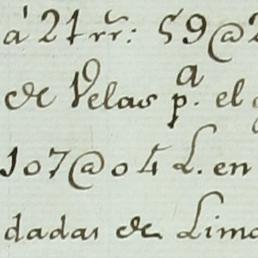 á 21 rr.: 59@2
de Velas p.ª el
107@04 L. en
dadas de Limo